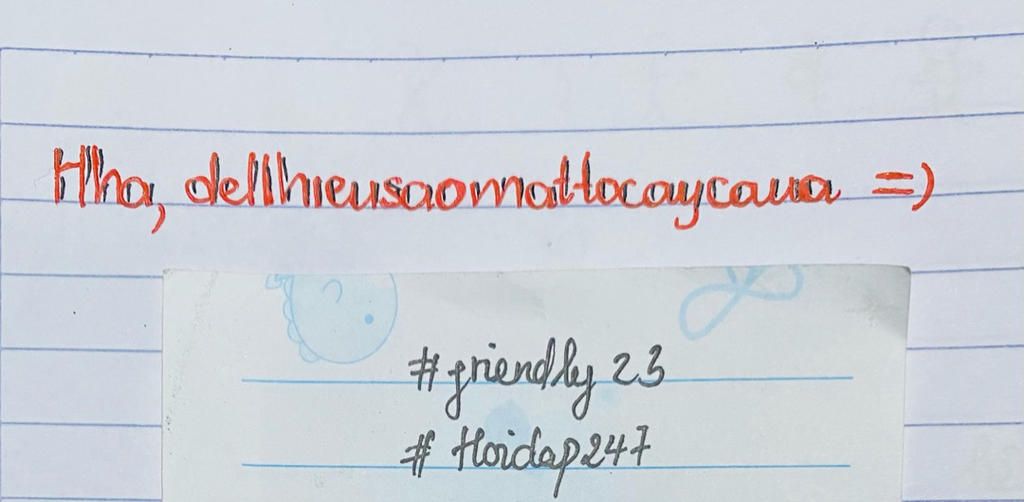 Hha, dellhieusaomattocaycaua =)
#friendly 23
# Hoidap247